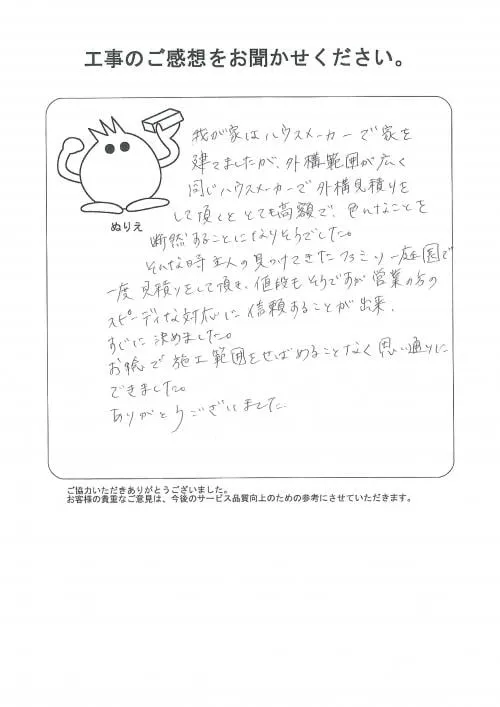 工事のご感想をお聞かせください。
ぬりえ
我が家はハウスメーカーで家を
建てましたが、外構範囲が広く
同じハウスメーカーで外構見積りを
して頂くととても高額で、色んなことを
断然することになりそうでした。
そんな時主人の見つけてきたファミリー庭園で
一度見積りをして頂き、値段もそうですが営業の方の
スピーディな対応に信頼することが出来、
すぐに決めました。
お陰で施工範囲をせばめることなく思い通りに
できました。
ありがとうございました。
ご協力いただきありがとうございました。
お客様の貴重なご意見は、今後のサービス品質向上のための参考にさせていただきます。